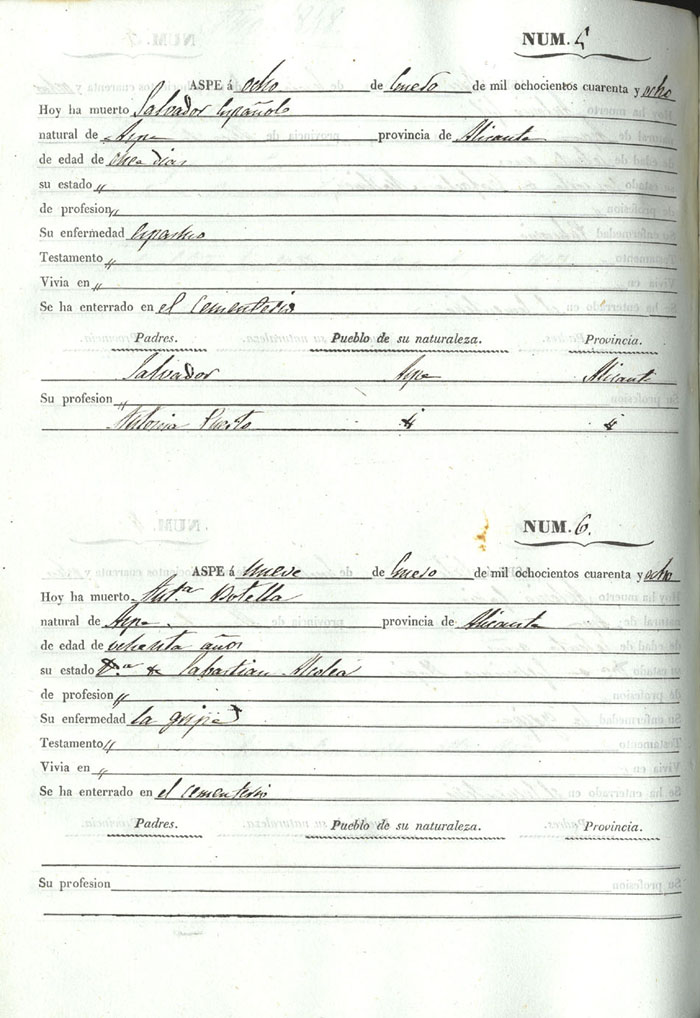 NUM. 5
ASPE á ocho de Enero de mil ochocientos cuarenta y ocho
Hoy ha muerto Salvador Español
natural de Aspe provincia de Alicante
de edad de once dias
su estado "
de profesion "
Su enfermedad espasmo
Testamento "
Vivia en "
Se ha enterrado en el cementerio
Padres. Pueblo de su naturaleza. Provincia.
Salvador Aspe Alicante
Su profesion "
Antonia Puerto
NUM. 6.
ASPE á nueve de Enero de mil ochocientos cuarenta y ocho
Hoy ha muerto Ant.ª Botella
natural de Aspe. provincia de Alicante
de edad de ochenta años
su estado V.ª de Sabastian Alcolea
de profesion "
Su enfermedad la gripe
Testamento "
Vivia en "
Se ha enterrado en el cementerio
Padres. Pueblo de su naturaleza. Provincia.
Su profesion